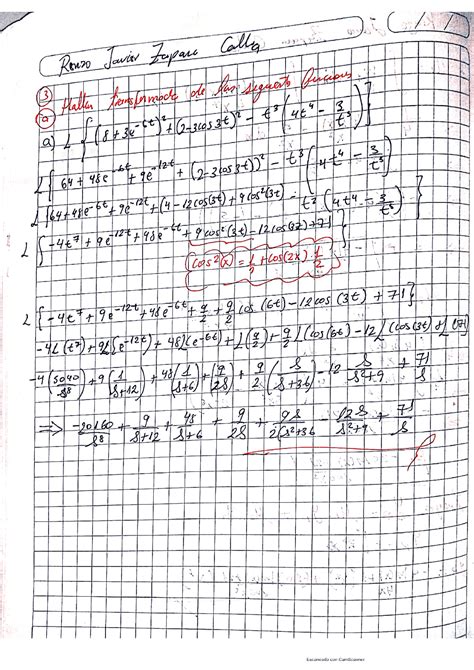 Renzo Javier Zapana Calla
③ Hallar transformada de las siguientes funciones
ⓐ
a) L { (8+3e^-6t)² + (2-3cos3t)² - t³ (4t⁴ - 3/t³) }
L { 64 + 48e^-6t + 9e^-12t + (2-3cos3t))² - t³ (4t⁴ - 3/t³) }
L { 64+48e^-6t + 9e^-12t + (4-12cos(3t) + 9cos²(3t) - t² (4t⁴ - 3/t³) }
L { -4t⁷ + 9e^-12t + 48e^-6t + 9cos²(3t) - 12cos(3t) + 71 }
cos²(x) = 1/2 + cos(2x) . 1/2
L { -4t⁷ + 9e^-12t + 48e^-6t + 9/2 + 9/2 cos(6t) - 12cos(3t) + 71 }
-4L(t⁷) + 9L(e^-12t) + 48L(e^-6t) + L(9/2) + 9/2 L(cos(6t) - 12L(cos(3t) + L(71)
-4(5040/s⁸) + 9(1/s+12) + 48(1/s+6) + (9/2s) + 9/2 (s/s²+36) - 12 s/s²+9 + 71/s
⇒ -20160/s⁸ + 9/s+12 + 48/s+6 + 9/2s + 9s/2(s²+36 - 12s/s²+9 + 71/s
Escaneado con CamScanner